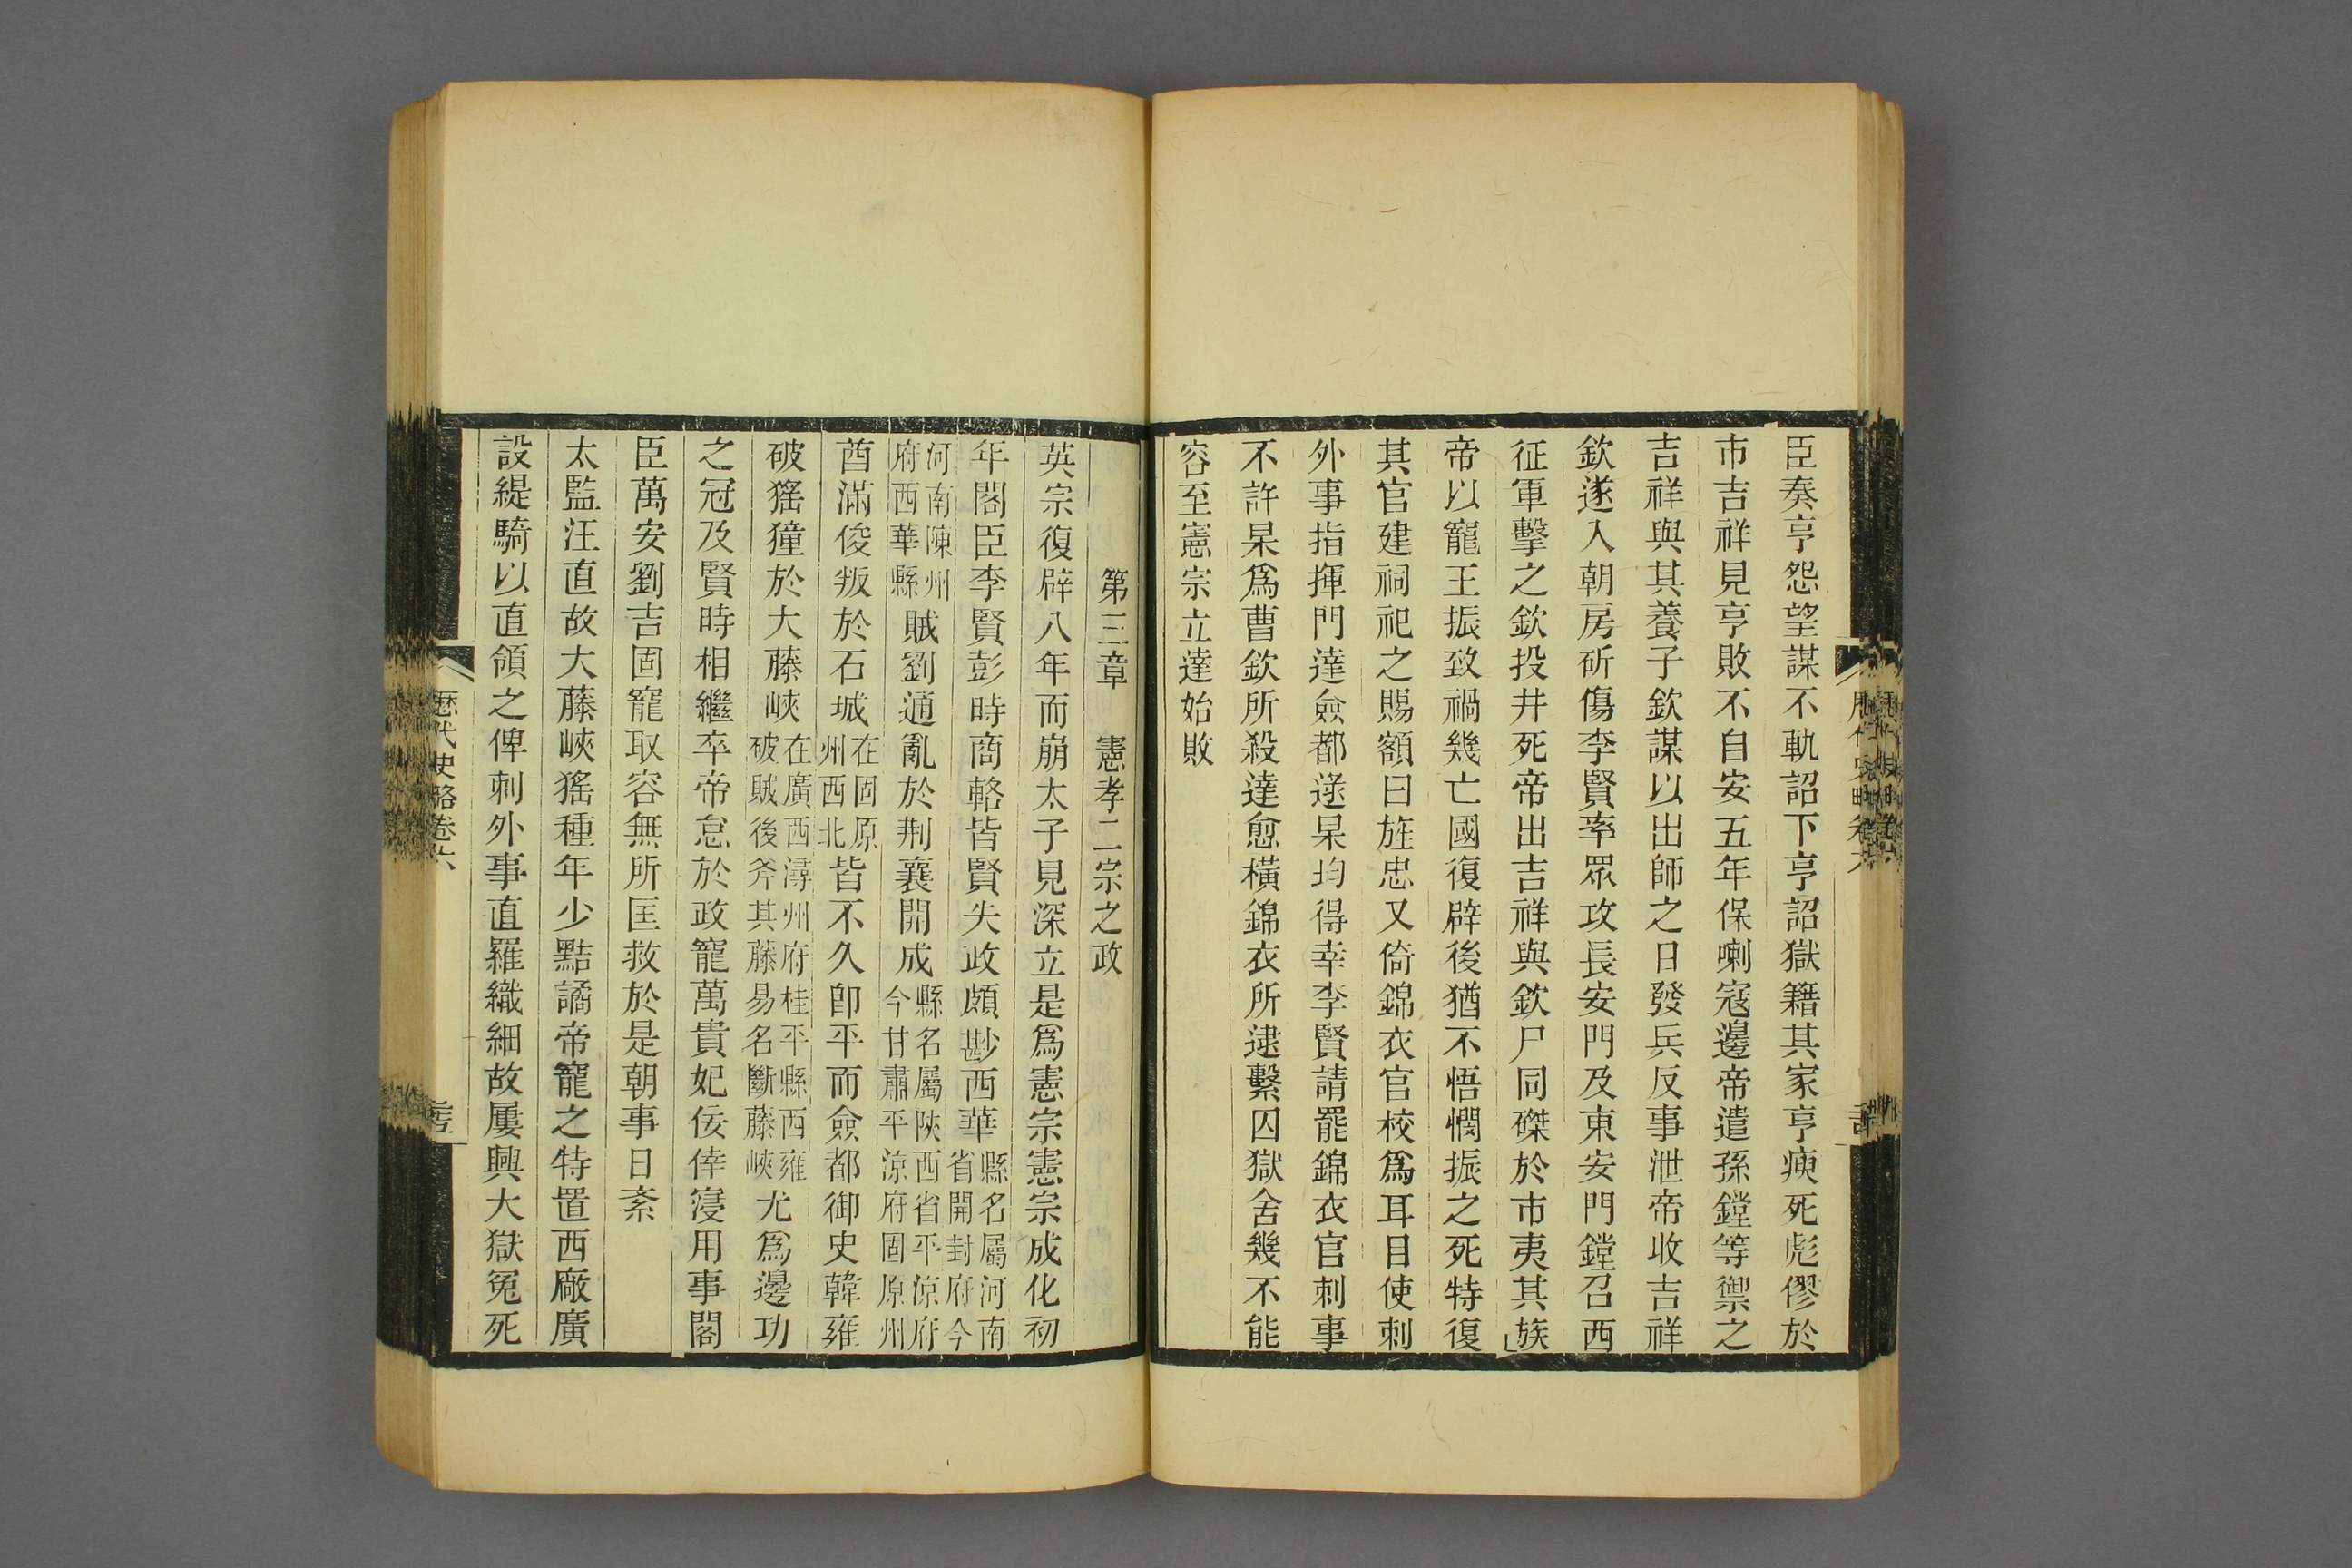 臣奏亨怨望謀不軌詔下亨詔獄籍其家亨瘐死彪僇於
市吉祥見亨敗不自安五年保喇寇邊帝遣孫鏜等禦之
吉祥與其養子欽謀以出師之日發兵反事泄帝收吉祥
欽遂入朝房斫傷李賢率眾攻長安門及東安門鏜召西
征軍擊之欽投井死帝出吉祥與欽尸同磔於市夷其族
帝以寵王振致禍幾亡國復辟後猶不悟憫振之死特復
其官建祠祀之賜額曰旌忠又倚錦衣官校爲耳目使刺
外事指揮門達僉都逯杲均得幸李賢請罷錦衣官刺事
不許杲爲曹欽所殺達愈橫錦衣所逮繫囚獄舍幾不能
容至憲宗立達始敗
第三章 憲孝二宗之政
英宗復辟八年而崩太子見深立是爲憲宗憲宗成化初
年閣臣李賢彭時商輅皆賢失政頗尠西華縣名屬河南省開封府今
河南陳州府西華縣賊劉通亂於荆襄開成縣名屬陝西省平涼府今甘肅平涼府固原州
酋滿俊叛於石城在固原州西北皆不久卽平而僉都御史韓雍
破猺獞於大藤峽在廣西潯州府桂平縣西雍破賊後斧其藤易名斷藤峽尤爲邊功
之冠及賢時相繼卒帝怠於政寵萬貴妃佞倖寖用事閣
臣萬安劉吉固寵取容無所匡救於是朝事日紊
太監汪直故大藤峽猺種年少黠譎帝寵之特置西廠廣
設緹騎以直領之俾刺外事直羅織細故屢興大獄冤死
歷代史略卷六